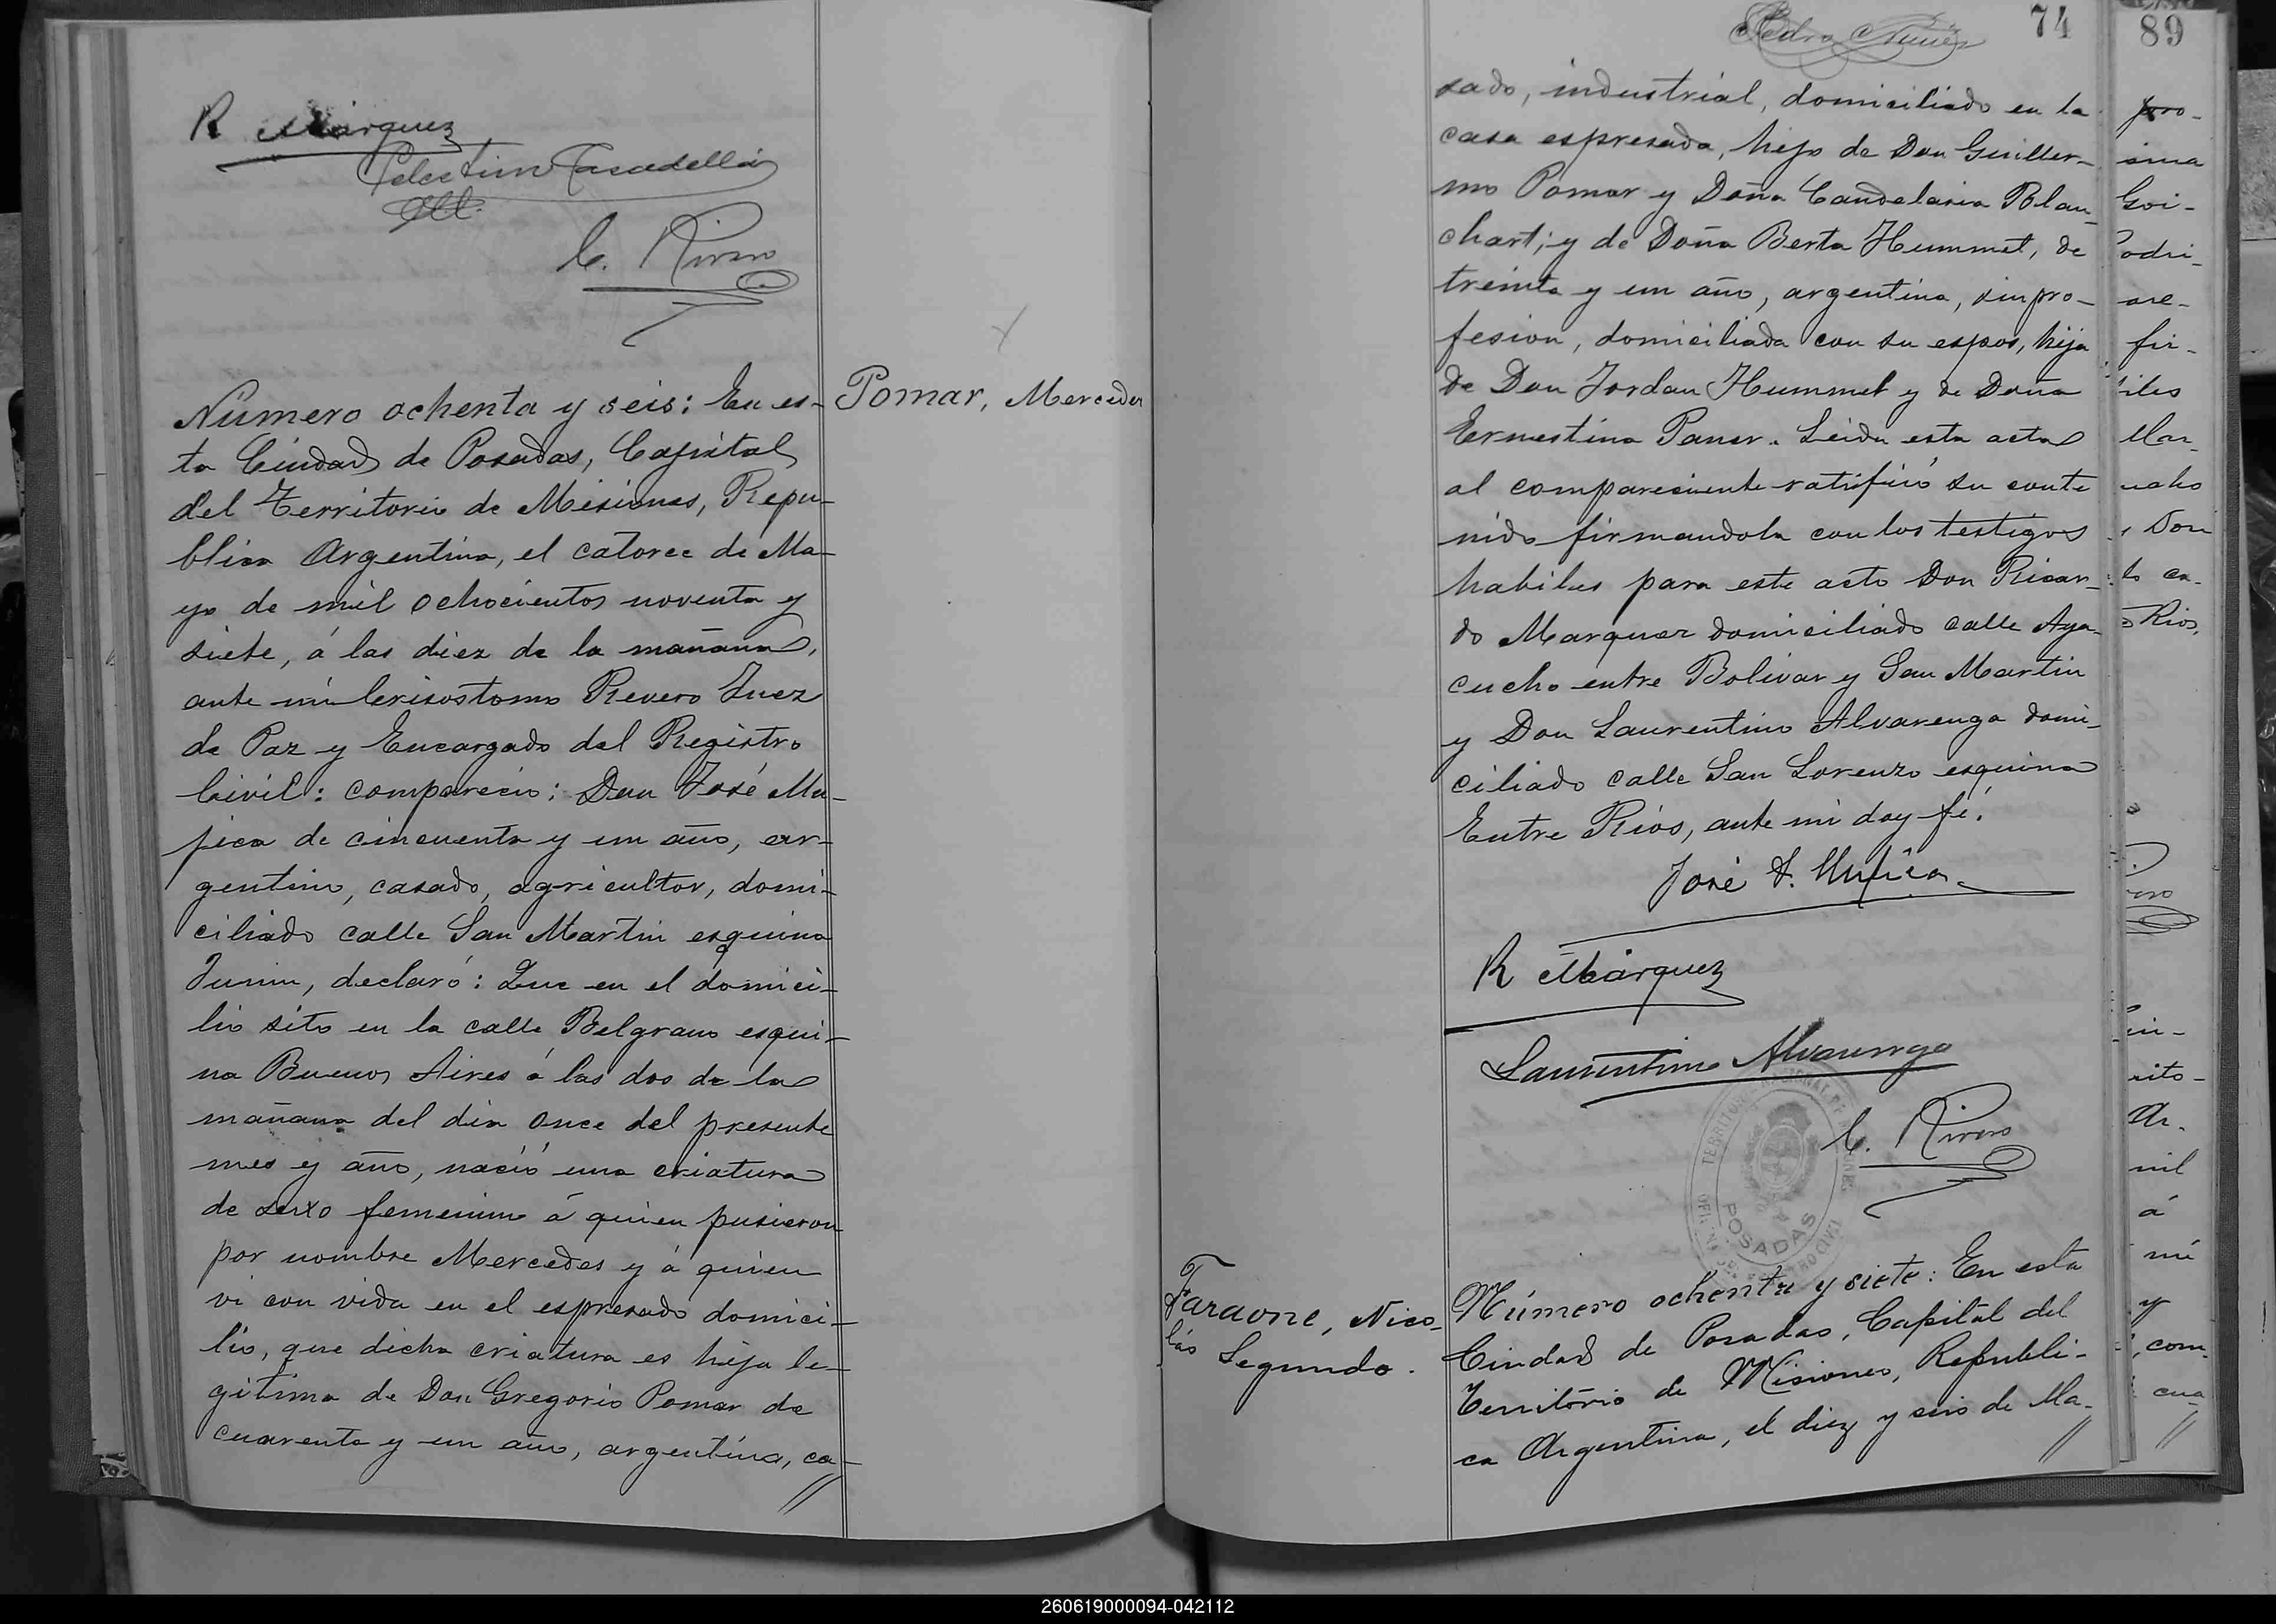 R Márquez
C. Rivero
Pomar, Mercedes
Número ochenta y seis: En es-
ta Ciudad de Posadas, Capital
del Territorio de Misiones, Repu-
blica Argentina, el catorce de Ma-
yo de mil ochocientos noventa y
siete, á las diez de la mañana,
ante mi Crisostomo Rivero Juez
de Paz y Encargado del Registro
Civil: compareció: Don José Mu-
jica de cincuenta y un año, ar-
gentino, casado, agricultor, domi-
ciliado calle San Martin esquina
Junin, declaró: Que en el domici-
lio sito en la calle Belgrano esqui-
na Buenos Aires á las dos de la
mañana del dia once del presente
mes y año, nació una criatura
de sexo femenino á quien pusieron
por nombre Mercedes y á quien
vi con vida en el espresado domici-
lio, que dicha criatura es hija le-
gitima de Don Gregorio Pomar de
cuarenta y un año, argentino, ca-
//
Pedro Nuñez
74
sado, industrial, domiciliado en la
casa espresada, hijo de Don Guiller-
mo Pomar y Doña Candelaria Blan-
chart; y de Doña Berta Hummel, de
treinta y un año, argentina, sin pro-
fesion, domiciliada con su espos, hija
de Don Jordan Hummel y de Doña
Ernestina Paner. Leida esta acta
al compareciente ratifició su conte
nido firmandola con los testigos
habiles para este acto Don Ricar-
do Marquez domiciliado calle Aya-
cucho entre Bolivar y San Martin
y Don Laurentino Alvarenga domi-
ciliado calle San Lorenzo esquina
Entre Rios, ante mi doy fé.
José F. Mujica
R Márquez
Laurentino Alvarenga
C. Rivero
POSADAS
Faraone, Nico-
lás Segundo.
Número ochenta y siete: En esta
Ciudad de Posadas, Capital del
Territorio de Misiones, Republi-
ca Argentina, el diez y seis de Ma-
//
89
pro-
sima
Goi-
odri-
are-
fir-
iles
Mar
ucho
Don
to ca-
Rios,
in-
rito-
Ar-
mil
á
mi
y
com-
cua
//
260619000094-042112